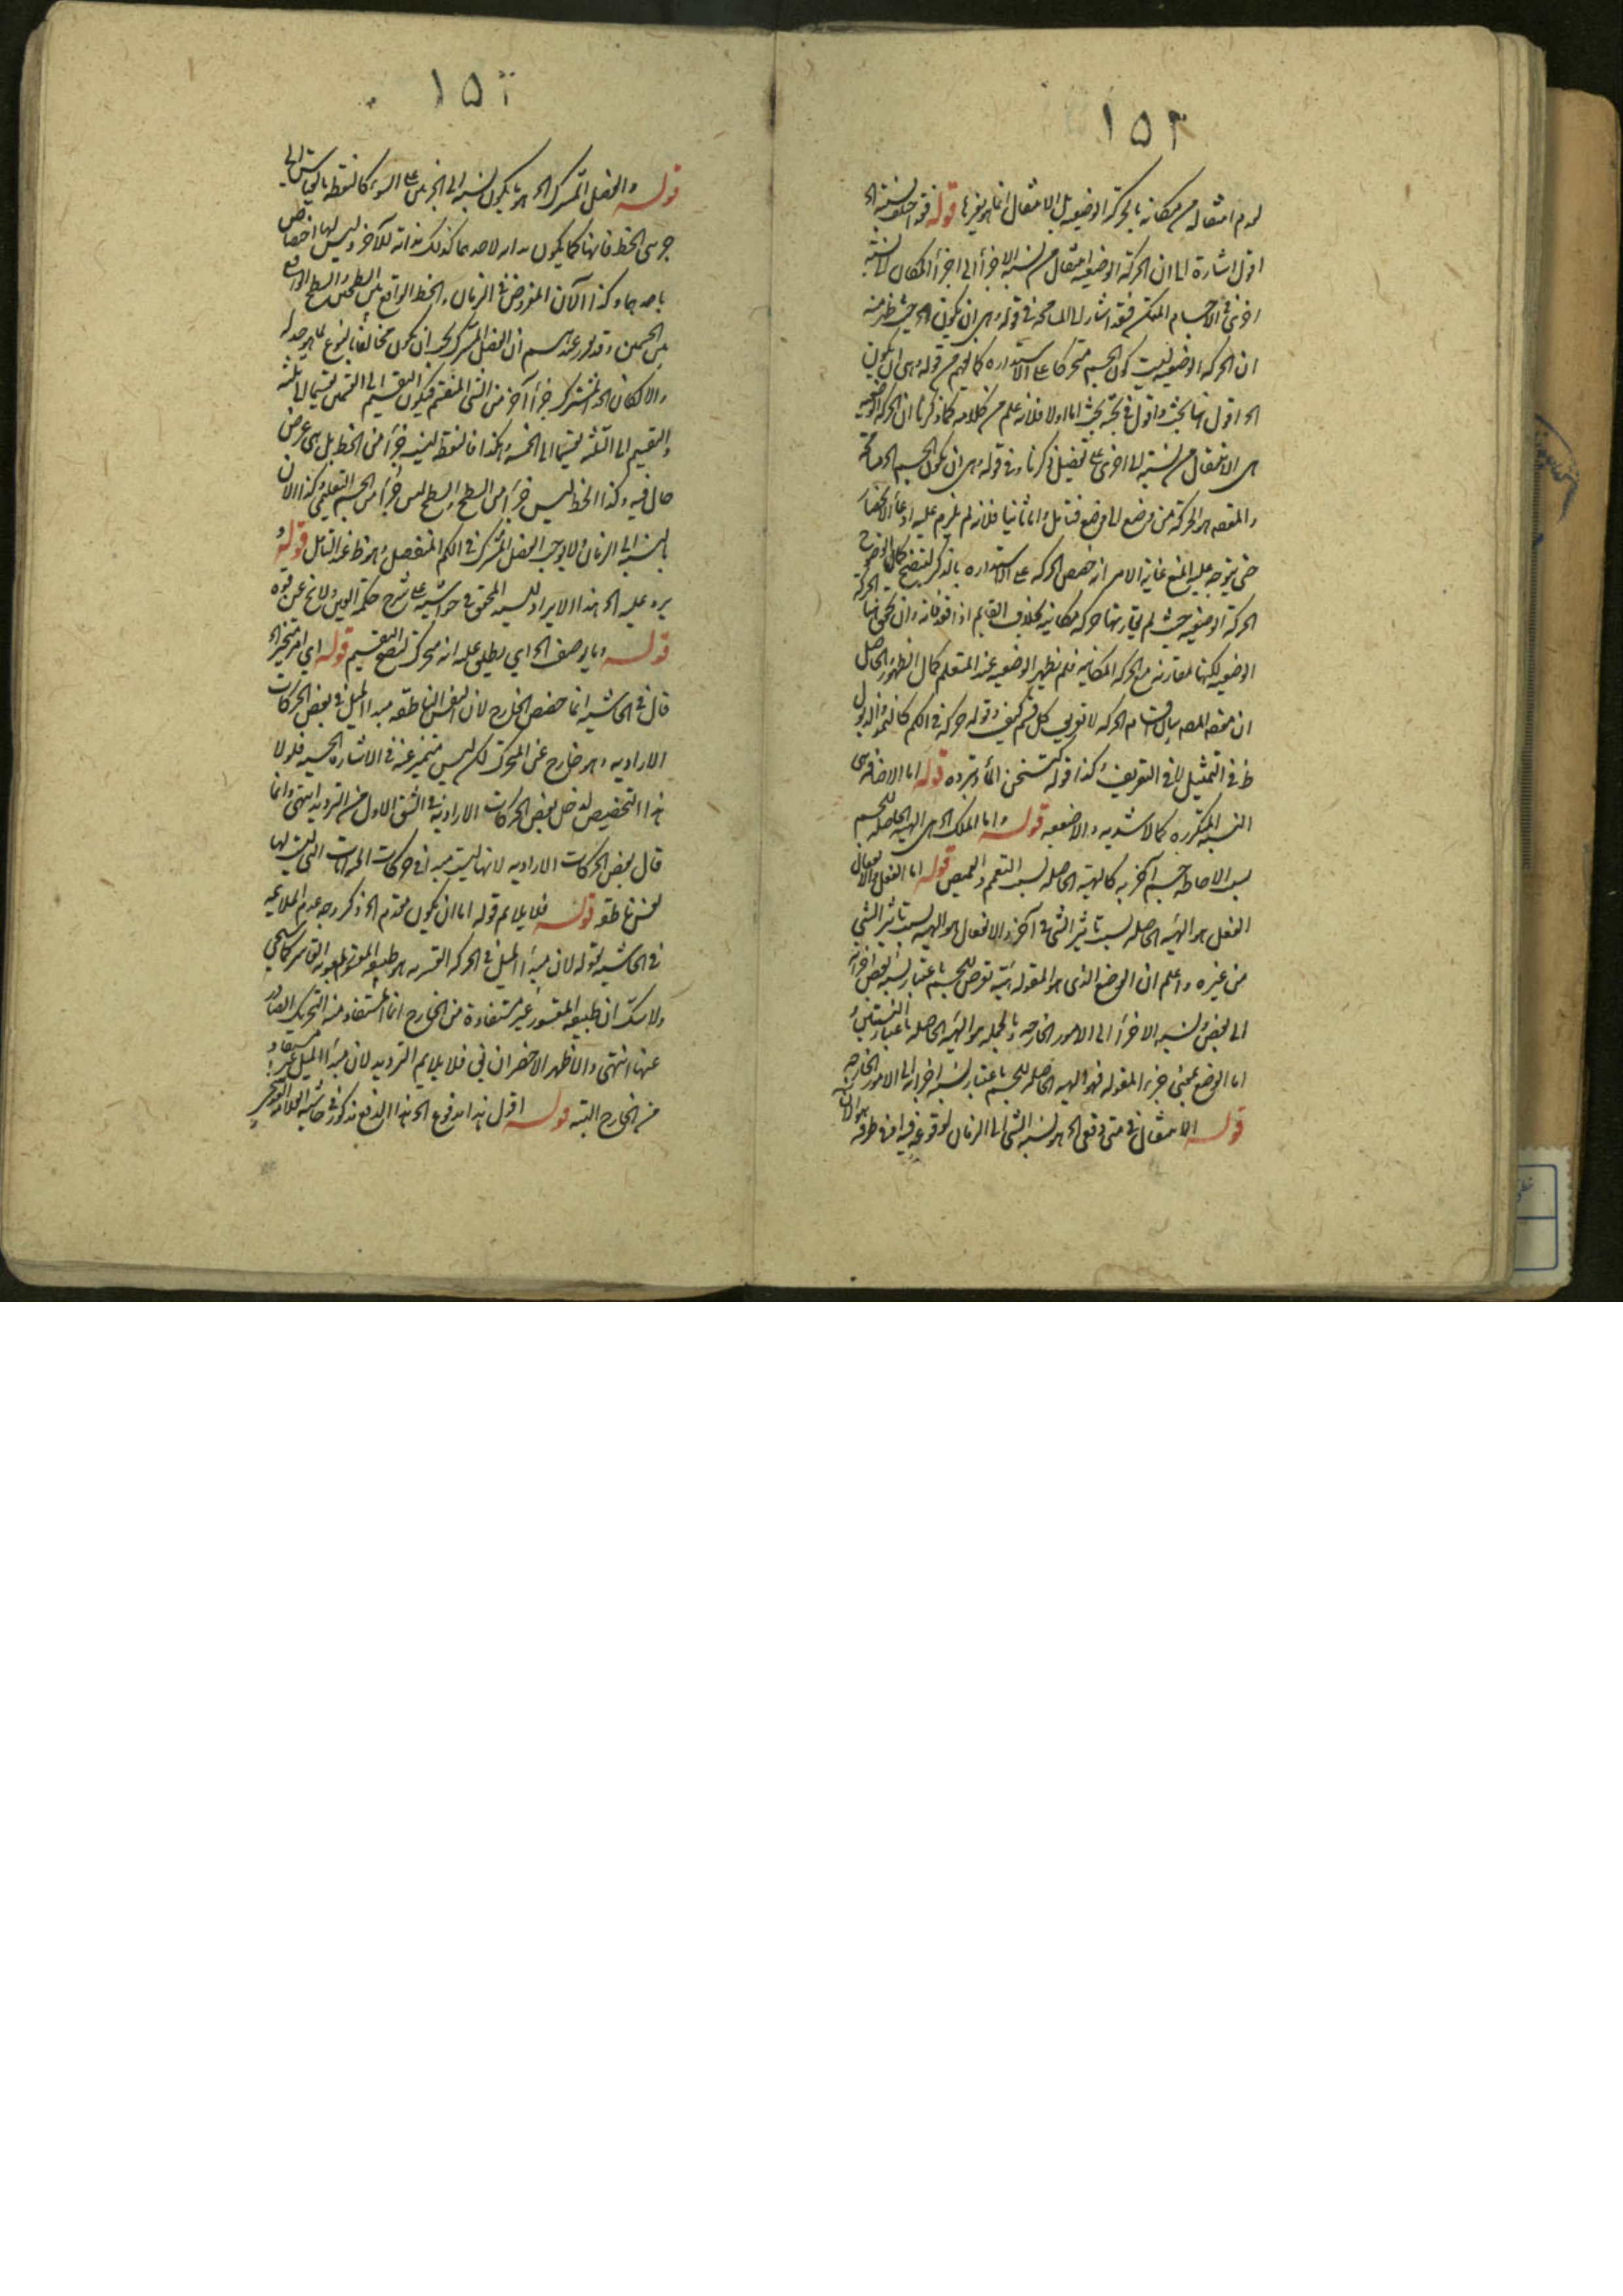 ١٥٣
لعدم انتقاله من مكانه بالحركة الوضعيه بل الانتقال انما هو بغيرها قوله فقد اختلف نسبة الخ
اقول اشارة الى ان الحركة الوضعيه انتقال من نسبة الاجزأ الى اجزأ المكان لا نسبته
ان الحركه الوضعيه ليست كون الجسم متحركا على الاستداره كما يفهم من قوله وهى ان يكون
الخ اقول فيها بحث واقول فى بحثه بحث اما اولا فلانه علم من كلامه كما ذكرنا ان الحركه الوضعيه
هى الانتقال من نسبة الى اخرى على تفصيل ذكرنا وفى قوله وهى ان يكون الجسم الخ
والمقصه هو الحركة من وضع الى وضع فتامل واما ثانيا فلانه لم يلزم عليه ادعأ الانحصار
حتى يتوجه عليه المنع غاية الامر انه خصص الحركه على الاستداره بالذكر لتتضح كمال الوضوح
الحركة الوضعيه حيث لم يقارنها حركه مكانيه بخلاف القايم اذا قعد فانه وان تحقق فيها الحركة
الوضعيه لكنها مقارنه مع الحركه المكانيه فلم يظهر الوضعيه عند المتعلم كمال الظهور الحاصل
ان مقصه المصه بيان اقسام الحركه لا تعريف كل قسم كيف وقوله حركه فى الكم كالنمو والذبول
ظ فى التمثيل لا فى التعريف وكذا قوله كتسخن المأ وتبرده قوله اما الاضافه هى
النسبه المتكرره كالاشديه والاضعفيه قوله واما الملك الخ هى الهيئه الحاصله للجسم
بسبب الاحاطه جسم آخر به كالهيئه الحاصله بسبب التعمم والتقمص قوله اما الفعل والانفعال
الفعل هو الهيئه الحاصله بسبب تاثير الشى فى آخر والانفعال هو الهيئه بسبب تاثر الشى
من غيره واعلم ان الوضع الذى هو المقوله هيئة تعرض للجسم باعتبار نسبة بعض اجزائه
الى بعض ونسبه الاجزأ الى الامور الخارجه وبالجمله هو الهيئه الحاصله باعتبار النسبتين و
اما الوضع بمعنى جزء المقوله فهو الهيئه الحاصله للجسم باعتبار نسبة اجزائه الى الامور الخارجه
قوله الانتقال فى متى دفعى الخ هو نسبه الشى الى الزمان لوقوعه فيه او فى طرفه هو الآن
١٥٤
قوله والفصل المشترك الخ هو ما يكون نسبه الى الجزئين على السوأ كالنقطه بالقياس الى
جزئى الخط فانها كما يكون بدايه لاحدهما كذلك بدايه للآخر وليس لها اختصاص
باحدهما وكذا الآن المفروض فى الزمان والخط الواقع بين السطحين والسطح الواقع
بين الجسمين وقد تقرر عندهم ان الفصل المشترك يجب ان يكون مخالفا بالنوع لما هو حد له
والا لكان الحد المشترك جزأ آخر من الشى المنقسم فيكون التقسيم الى القسمين تقسيما الى ثلثة
والتقسيم الى الثلثه تقسيما الى الخمسه وهكذا فالنقطه ليست جزأ من الخط بل هى عرض
حال فيه وكذا الخط ليس جزأ من السطح والسطح ليس جزأ من الجسم التعليمى وكذا الآن
بالنسبة الى الزمان ولا يوجد الفصل المشترك فى الكم المنفصل وهو ظ عند التامل قوله و
يرد عليه الخ هذا الايراد للسيد المحقق فى حواشيه على شرح حكمة العين ولا يخ عن قوه
قوله وما يوصف الخ اى يطلق عليه انه متحرك ليصح التقسيم قوله اى امر متحيز الخ
قال فى الحاشيه انما خصص الخارج لان النفس الناطقه مبدا الميل فى بعض الحركات
الاراديه وهو خارج عن المتحرك لكن ليس متميز عنه فى الاشاره الحسيه فلولا
هذا التخصيص لدخل بعض الحركات الاراديه فى الشق الاول من الترديد انتهى وانما
قال بعض الحركات الاراديه لانها ليست مبدأ فى حركات الحيوانات التى ليست لها
نفس ناطقه قوله فلا يلايم قوله اما ان يكون مقدم الخ ذكر وجه عدم الملايمه
فى الحاشيه بقوله لان مبدأ الميل فى الحركه القسريه هو طبيعه المقسور بمعونة القاسر كما سيجى
ولا شك ان طبيعه المقسور غير مستفادة من الخارج انما المستفاد منه التحريك الصادر
عنها انتهى والاظهر الاخصر ان فى فلا يلايم الترديد لان مبدأ الميل غير مستفاد
من الخارج البته قوله اقول هذا مدفوع الخ هذا الدفع مذكور فى حاشية العلامه